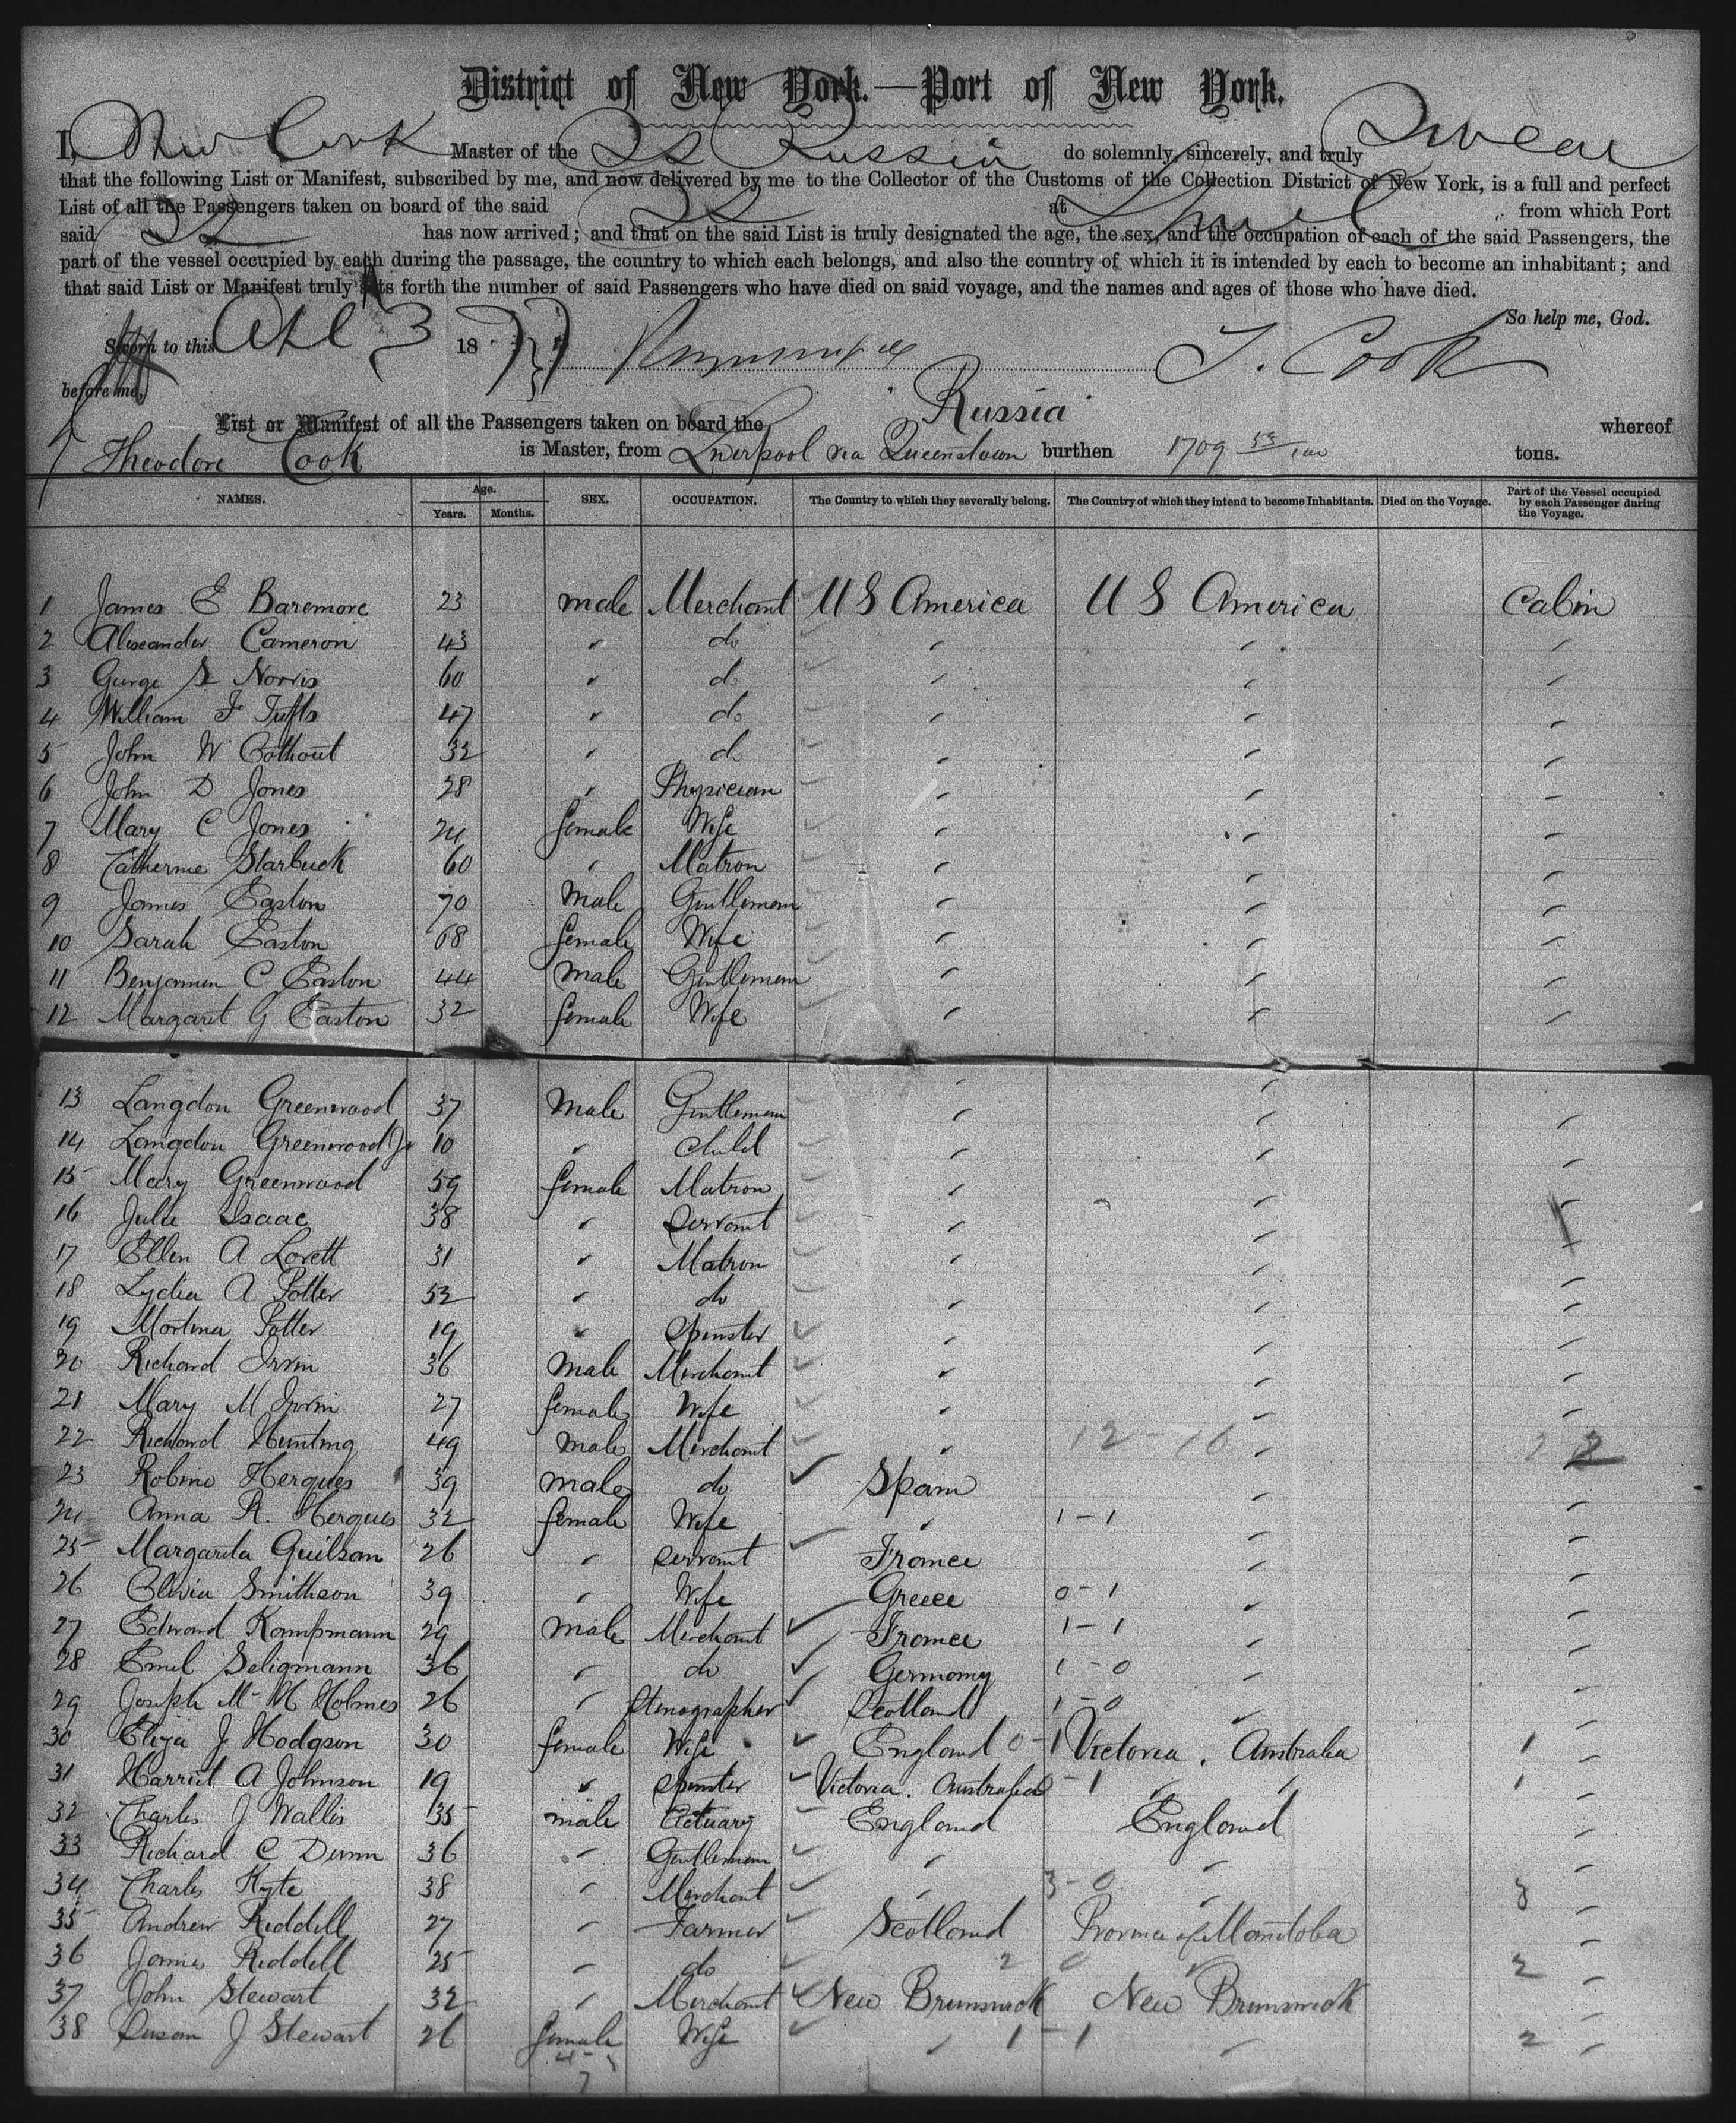 District of New York.—Port of New York.
I, Theo Cook Master of the SS Russia do solemnly, sincerely, and truly Swear
that the following List or Manifest, subscribed by me, and now delivered by me to the Collector of the Customs of the Collection District of New York, is a full and perfect
List of all the Passengers taken on board of the said SS at from which Port
said SS has now arrived; and that on the said List is truly designated the age, the sex, and the occupation of each of the said Passengers, the
part of the vessel occupied by each during the passage, the country to which each belongs, and also the country of which it is intended by each to become an inhabitant; and
that said List or Manifest truly sets forth the number of said Passengers who have died on said voyage, and the names and ages of those who have died.
So help me, God.
Sworn to this Apl 3 1877 T. Cook
before me,
List or Manifest of all the Passengers taken on board the "Russia" whereof
Theodore Cook is Master, from Liverpool via Queenstown burthen 1709 33/100 tons.
NAMES. Age. Years. Months. SEX. OCCUPATION. The Country to which they severally belong. The Country of which they intend to become Inhabitants. Died on the Voyage. Part of the Vessel occupied by each Passenger during the Voyage.
1 James E Baremore 23 male Merchant U S America U S America Cabin
2 Alexander Cameron 43 " do " " "
3 George S Norris 60 " do " " "
4 William F Tufts 47 " do " " "
5 John W Colhout 32 " do " " "
6 John D Jones 28 " Physician " " "
7 Mary C Jones 24 female Wife " " "
8 Catherine Starbuck 60 " Matron " " "
9 James Easton 70 Male Gentleman " " "
10 Sarah Easton 68 female Wife " " "
11 Benjamin C Easton 44 male Gentleman " " "
12 Margaret G Easton 32 female Wife " " "
13 Langdon Greenwood 37 Male Gentleman " " "
14 Langdon Greenwood Jr 10 " Child " " "
15 Mary Greenwood 59 female Matron " " "
16 Julie Isaac 38 " Servant " " "
17 Ellen A Lovett 31 " Matron " " "
18 Lydia A Potter 52 " do " " "
19 Mortina Potter 19 " Spinster " " "
20 Richard Irvin 36 Male Merchant " " "
21 Mary M Irvin 27 female Wife " " "
22 Richard Hunting 49 Male Merchant " 12-10 " 22
23 Robino Herques 39 male do Spain " "
24 Anna R. Herques 32 female Wife " 1-1 " "
25 Margarita Guilsan 26 " Servant France " "
26 Olivia Smithson 39 " Wife Greece 0-1 " "
27 Edward Kampmann 29 Male Merchant France 1-1 " "
28 Emil Seligmann 36 " do Germany 1-0 " "
29 Joseph McH Holmes 26 " Stenographer Scotland 1-0 " "
30 Eliza J Hodgson 30 female Wife England 0-1 Victoria. Australia 1 "
31 Harriet A Johnson 19 " Spinster Victoria. Australia 0-1 " " 1 "
32 Charles J Wallis 35 male Actuary England England "
33 Richard C Dunn 36 " Gentleman " " "
34 Charles Kyte 38 " Merchant " 3-0 " 3 "
35 Andrew Riddell 27 " Farmer Scotland Province of Manitoba "
36 James Riddell 25 " do 2 0 " 2 "
37 John Stewart 32 " Merchant New Brunswick New Brunswick "
38 Susan J Stewart 26 female Wife " 1-1 " 2 "